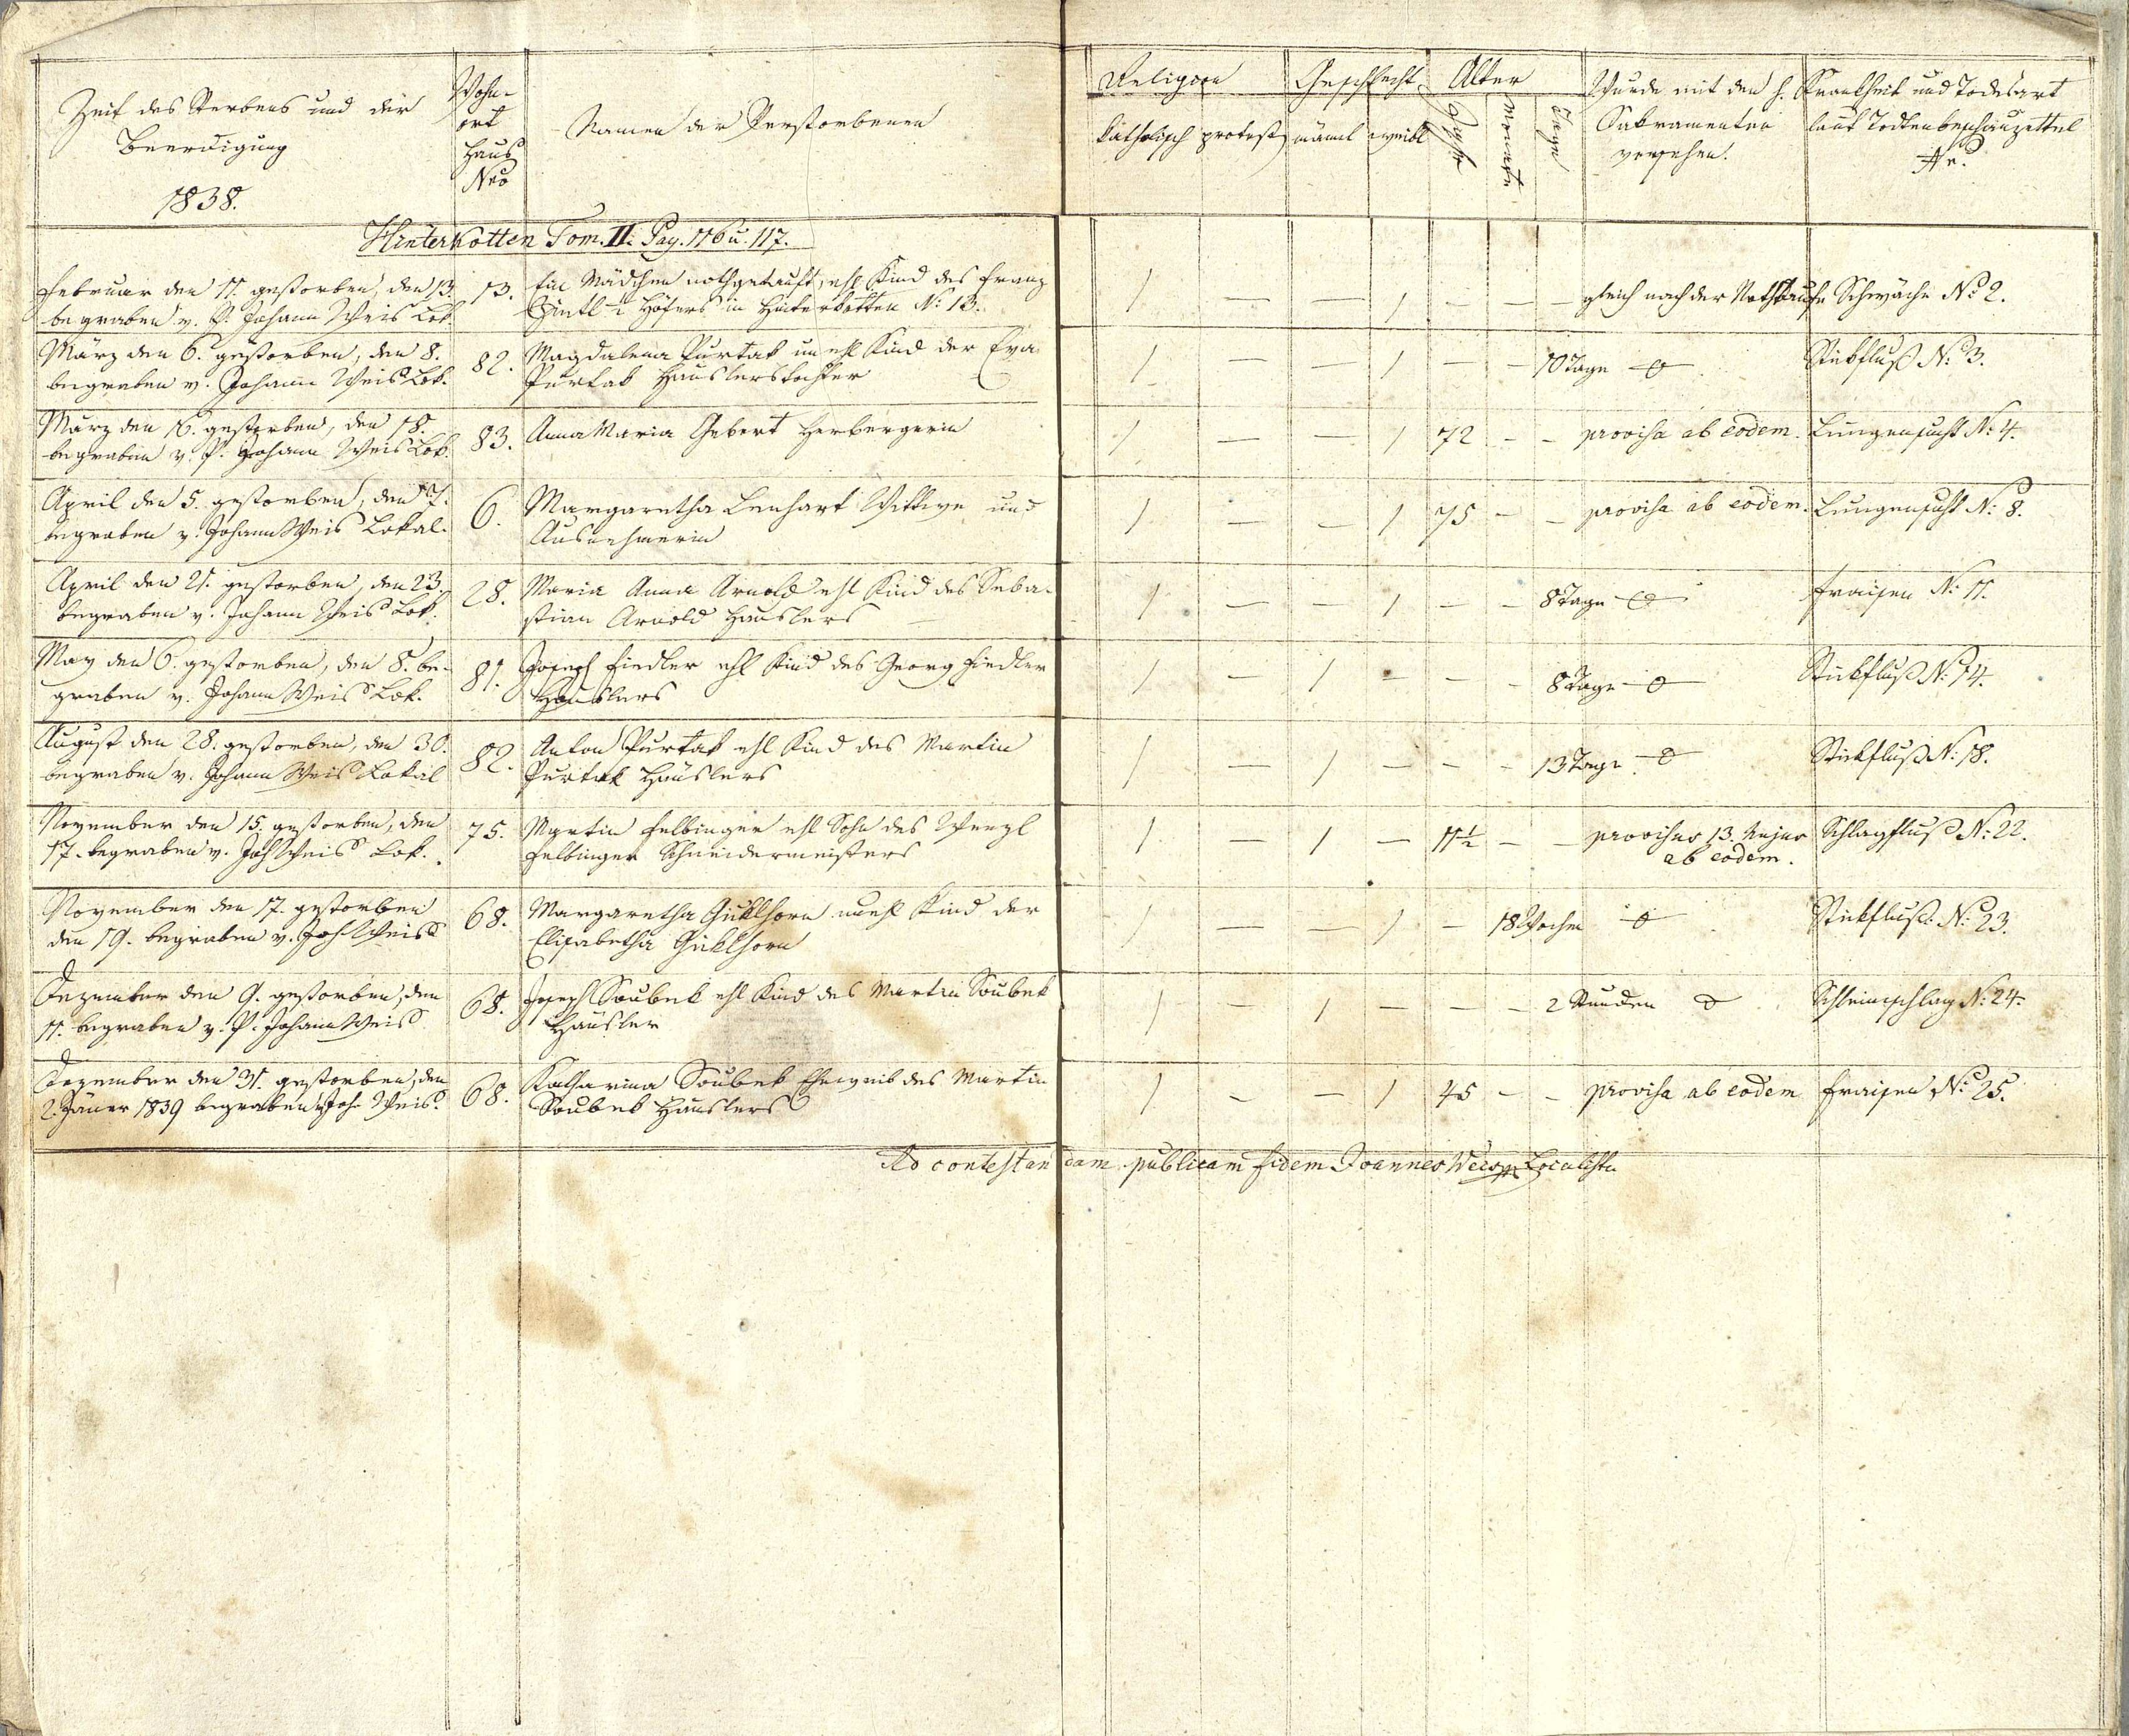 Zeit des Sterbens und der
Beerdigung
1838.
Wohn-
ort
Haus
Nro
Namen der Verstorbenen
Religion
katholisch protest
Geschlecht
männl weibl
Alter
Jahre
Monate
Tage
Wurde mit den h.
Sakramenten
versehen.
Krankheit und Todesart
laut Todtenbeschauzettel
Nr.
Hinterkotten Tom. II. Pag. 116 u. 117.
Februar den 11. gestorben, den 13. 13. Ein Mädchen nothgetauft, ehl Kind des Franz
begraben v. P. Johann Weis Lok. Höfers in Hinterkotten N: 13. 1 — — 1 — — — gleich nach der Nothtaufe Schwäche No 2.
März den 6. gestorben, den 8. 82. Magdalena Purtak unehl Kind der Eva
begraben v. Johann Weis Lok. Purtak Häuslerstochter 1 — — 1 — — 10 Tage Stickfluß No 3.
März den 16. gestorben, den 18. 83. Anna Maria Gebert Herbergerin
begraben v. P. Johann Weis Lok. 1 — — 1 72 - - provisa ab eodem. Lungensucht No 4.
April den 5. gestorben, den 7. 6. Margaretha Lenhart Wittwe und
begraben v. Johann Weis Lokal. Ausnehmerin 1 — — 1 75 - - provisa ab eodem. Lungensucht No 8.
April den 21. gestorben, den 23. 28. Maria Anna Arnold ehl Kind des Seba-
begraben v. Johann Weis Lok. stian Arnold Häuslers 1 — — 1 — — 8 Tage Fraisen No 11.
May den 6. gestorben, den 8. be- 81. Joseph Fiedler ehl Kind des Georg Fiedler
graben v. Johann Weis Lok. Häuslers 1 — 1 — — — 8 Tage Stickfluß No 14.
August den 28. gestorben, den 30. 82. Anton Purtak ehl Kind des Martin
begraben v. Johann Weis Lokal Purtak Häuslers 1 — 1 — — — 13 Tage Stickfluß No 18.
November den 15. gestorben, den 75. Martin Felbinger ehl Sohn des Wenzl
17. begraben v. Joh Weis Lok. Felbinger Schneidermeisters 1 — 1 — 11½ — — provisus 13. hujus Schlagfluß No 22.
ab eodem.
November den 17. gestorben 68. Margaretha Güklhorn unehl Kind der
den 19. begraben v. Joh Weis Elisabetha Güklhorn 1 — — 1 — 18 Wochen Stickfluß No 23.
Dezember den 9. gestorben, den 68. Joseph Soubek ehl Kind des Martin Soubek
11. begraben v. P. Johann Weis Häusler 1 — 1 — — — 2 Stunden Schleimschlag No 24.
Dezember den 31. gestorben, den 68. Katharina Soubek Eheweib des Martin
2. Jäner 1839 begraben v Joh. Weis. Soubek Häuslers 1 - - 1 45 - - provisa ab eodem Fraisen No 25.
Ad contestandam publicam fidem Joannes Weis Localista